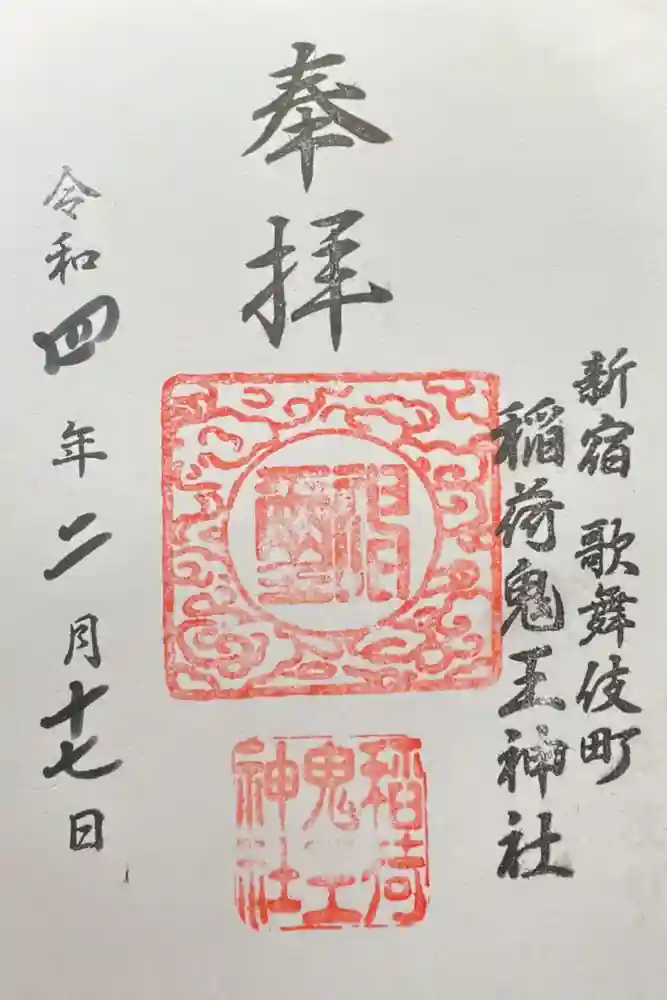 新宿 歌舞伎町
稲荷鬼王神社
奉拝
稲荷
鬼王
神社
令和四年二月十七日